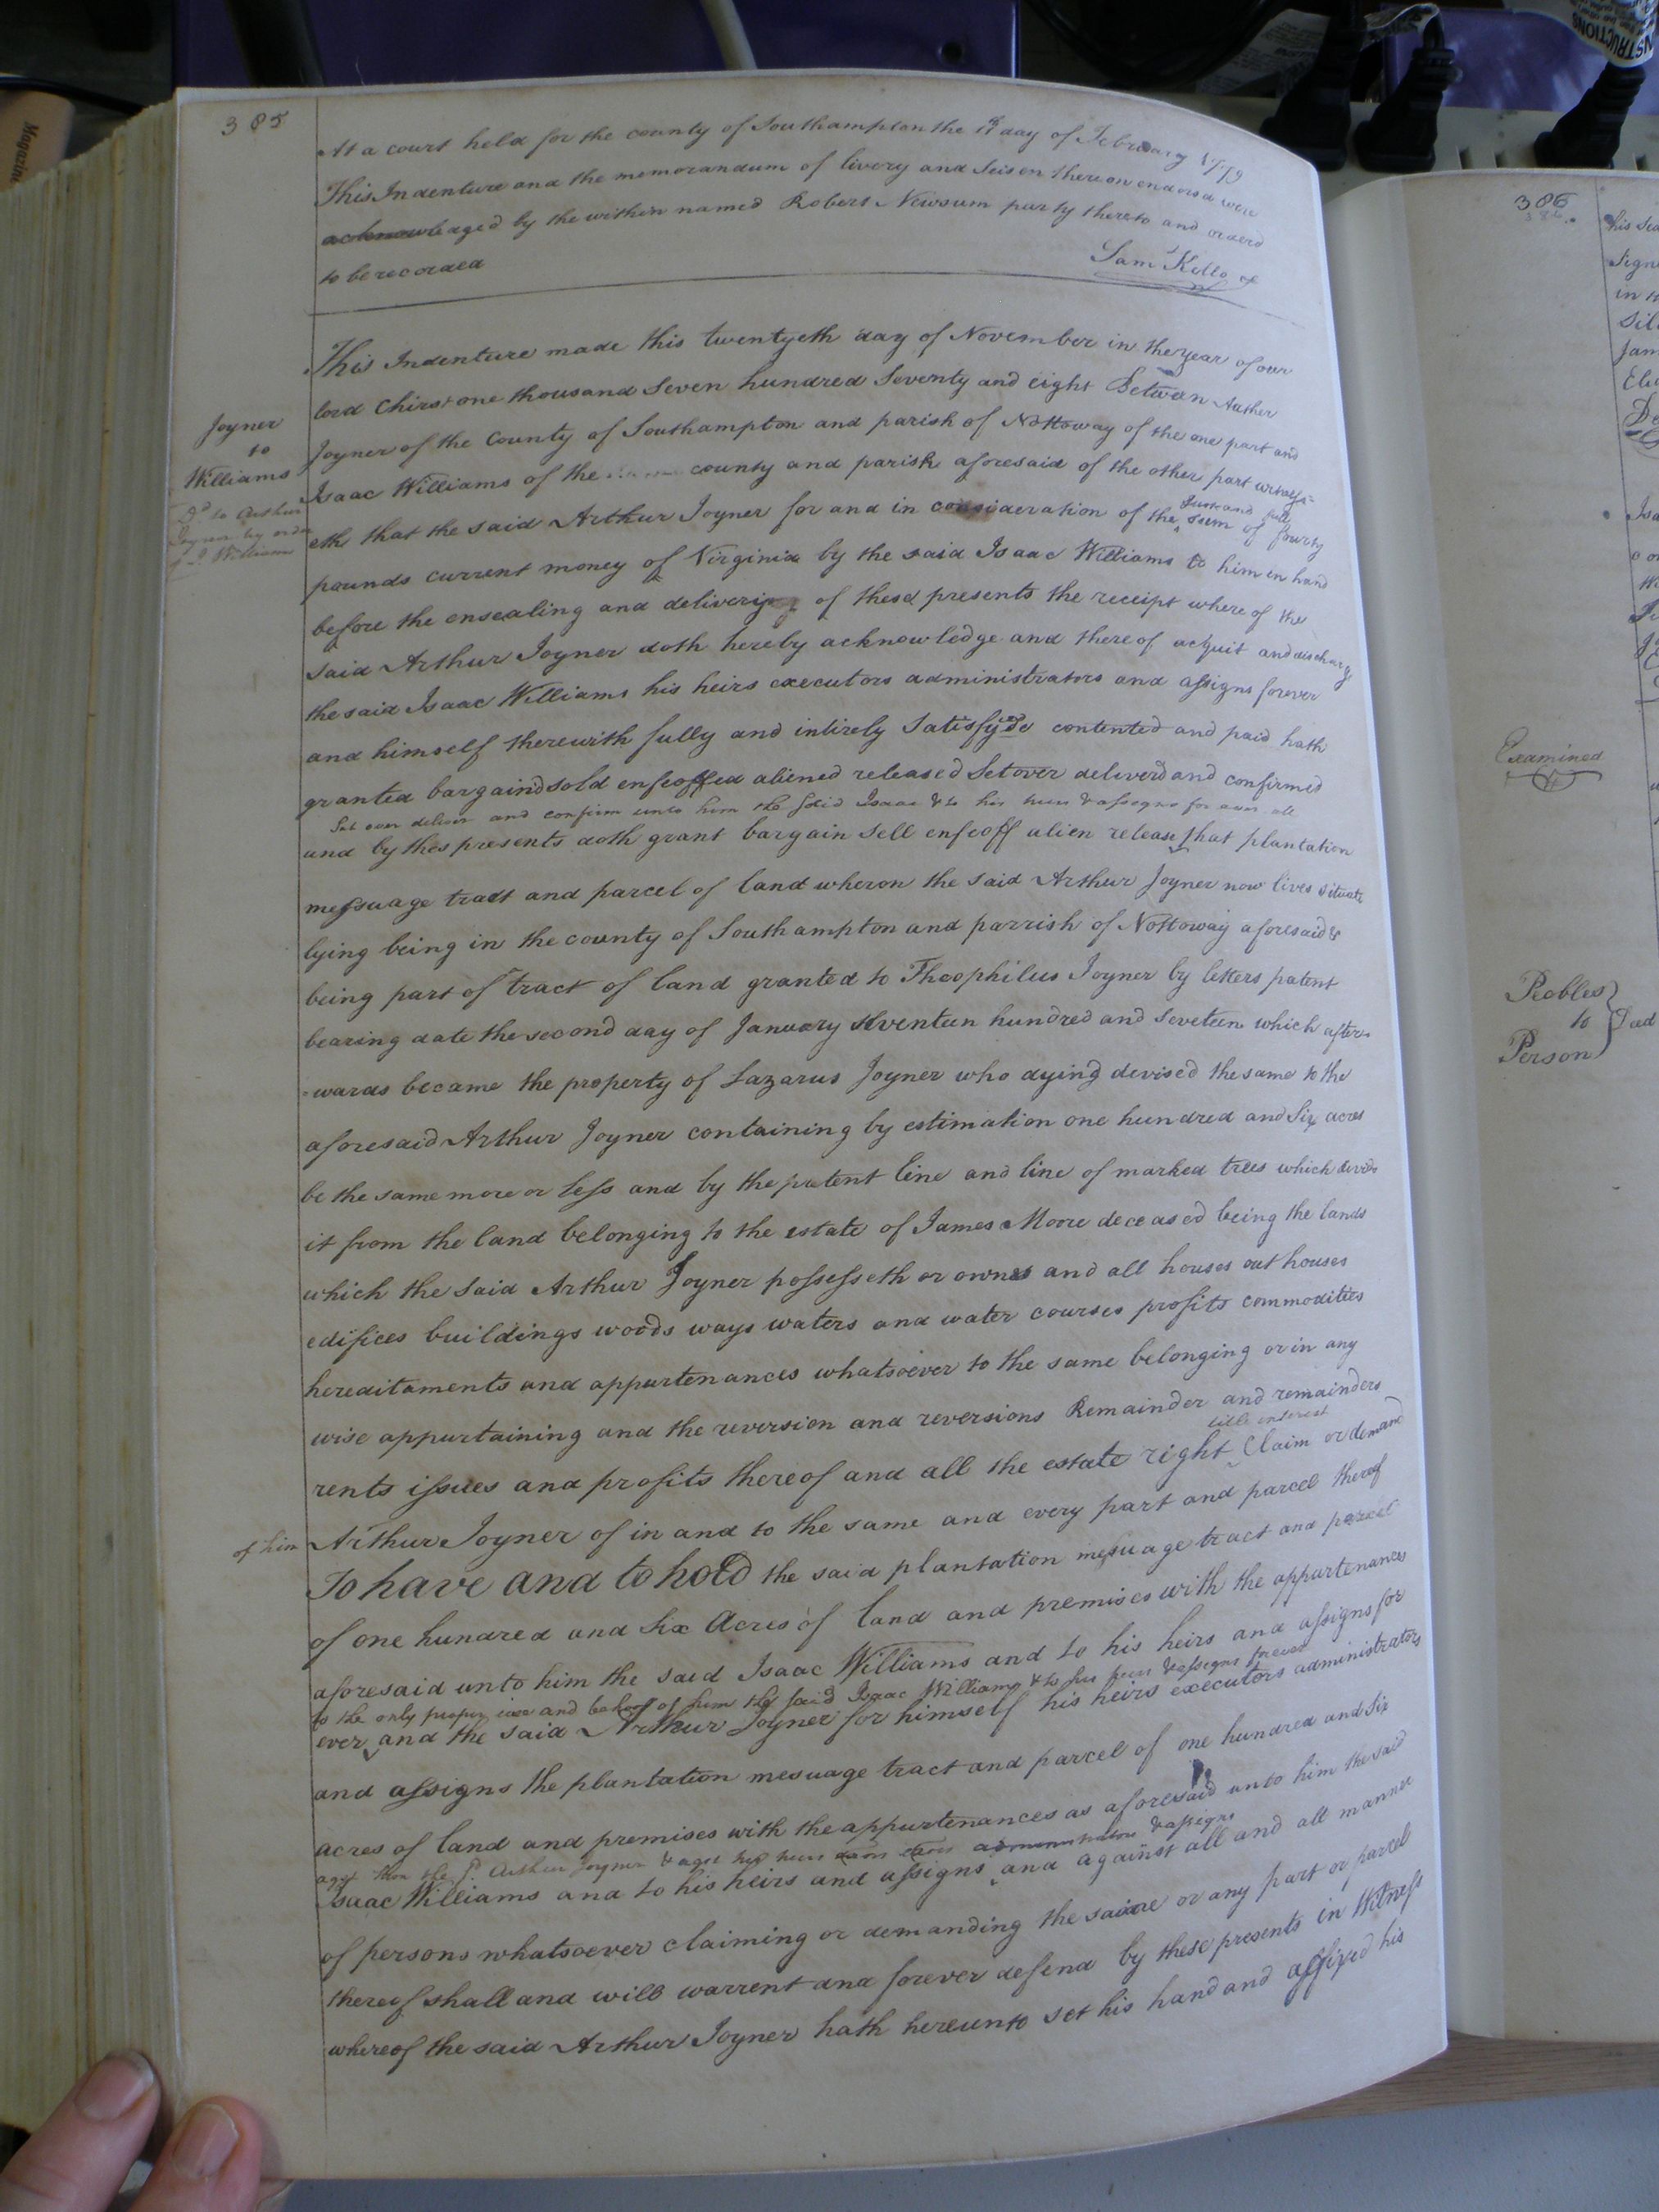 385
At a court held for the county of Southampton the day of February 1779
This Indenture and the memorandum of livery and Seisen thereon endorsd were
acknowledged by the within named Robert Newsum party thereto and orderd
to be recorded
Sam Kello
Joyner
to
Williams
Dd to Arthur
Joyner by order
Williams
This Indenture made this twentyeth day of November in the year of our
lord Chirst one thousand Seven hundred Seventy and eight Between Auther
Joyner of the County of Southampton and parish of Nottoway of the one part and
Isaac Williams of the county and parish aforesaid of the other part witness=
eth that the said Arthur Joyner for and in consideration of the Just and full sum of fourty
pounds current money of Virginia by the said Isaac Williams to him in hand
before the ensealing and delivering of these presents the receipt where of the
said Arthur Joyner doth hereby acknowledge and thereof acquit and discharg
the said Isaac Williams his heirs executors administrators and assigns forever
and himself therewith fully and intirely contented and paid hath
granted bargaind sold enfeoffed aliened released Setover deliverd and confirmed
Set over deliver and confirm unto him the said Isaac & to his heirs & assigns for ever all
and by thes presents doth grant bargain Sell enfeoff alien release that plantation
messuage tract and parcel of land wheron the said Arthur Joyner now lives situate
lying being in the county of Southampton and parrish of Nottoway aforesaid &
being part of tract of land granted to Theophilus Joyner by letters patent
bearing date the second day of January seventeen hundred and Seveteen which after=
=wards became the property of Lazarus Joyner who dying devised the same to the
aforesaid Arthur Joyner containing by estimation one hundred and Six acres
be the same more or less and by the patent line and line of marked trees which
it from the land belonging to the estate of James Moore deceased being the lands
which the said Arthur Joyner possesseth or owns and all houses out houses
edifices buildings woods ways waters and water courses profits commodities
hereditaments and appurtenances whatsoever to the same belonging or in any
wise appurtaining and the reversion and reversions Remainder and remainders
title interest
rents issues and profits thereof and all the estate right Claim or demand
of him Arthur Joyner of in and to the same and every part and parcel thereof
To have and to hold the said plantation messuage tract and parcel
of one hundred and Six Acres of land and premises with the appurtenances
aforesaid unto him the said Isaac Williams and to his heirs and assigns for
to the only proper use and behoof of him the said Isaac Williams & to his heirs & assigns forever
ever and the said Arthur Joyner for himself his heirs executors administrators
and assigns the plantation mesuage tract and parcel of one hundred and Six
acres of land and premises with the appurtenances as aforesaid unto him the said
agst him the sd Arthur Joyner & agst his heirs & assigns
Isaac Williams and to his heirs and assigns and against all and all manner
of persons whatsoever claiming or demanding the same or any part or parcel
thereof shall and will warrent and forever defend by these presents in Witness
whereof the said Arthur Joyner hath hereunto set his hand and affixed his
386
his
Sign
in
Examined
Peebles
to
Person
Deed
Magazin
INSTRUCTIONS